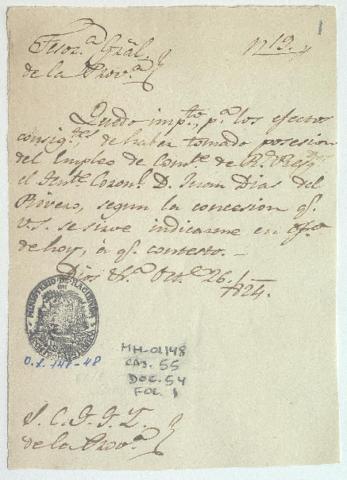 1
Tesor.ª Gral. nº 19.
de la Prov.ª
Quedo impto. p.ª los efectos
consig.tes de haber tomado posesion
del Empleo de Comte. de
el Tente. Coronl. D. Juan Dias del
Rivero, segun la concesion q.e
V.S. se sirve indicarme en ofº
de hoy, á q.e contesto. —
Dios &ª Oct.e 26/1824.
MINISTERIO DE HACIENDA
O.L. 148-48
MH-OL148
CAJ. 55
DOC. 54
FOL. 1
de la Prov.ª